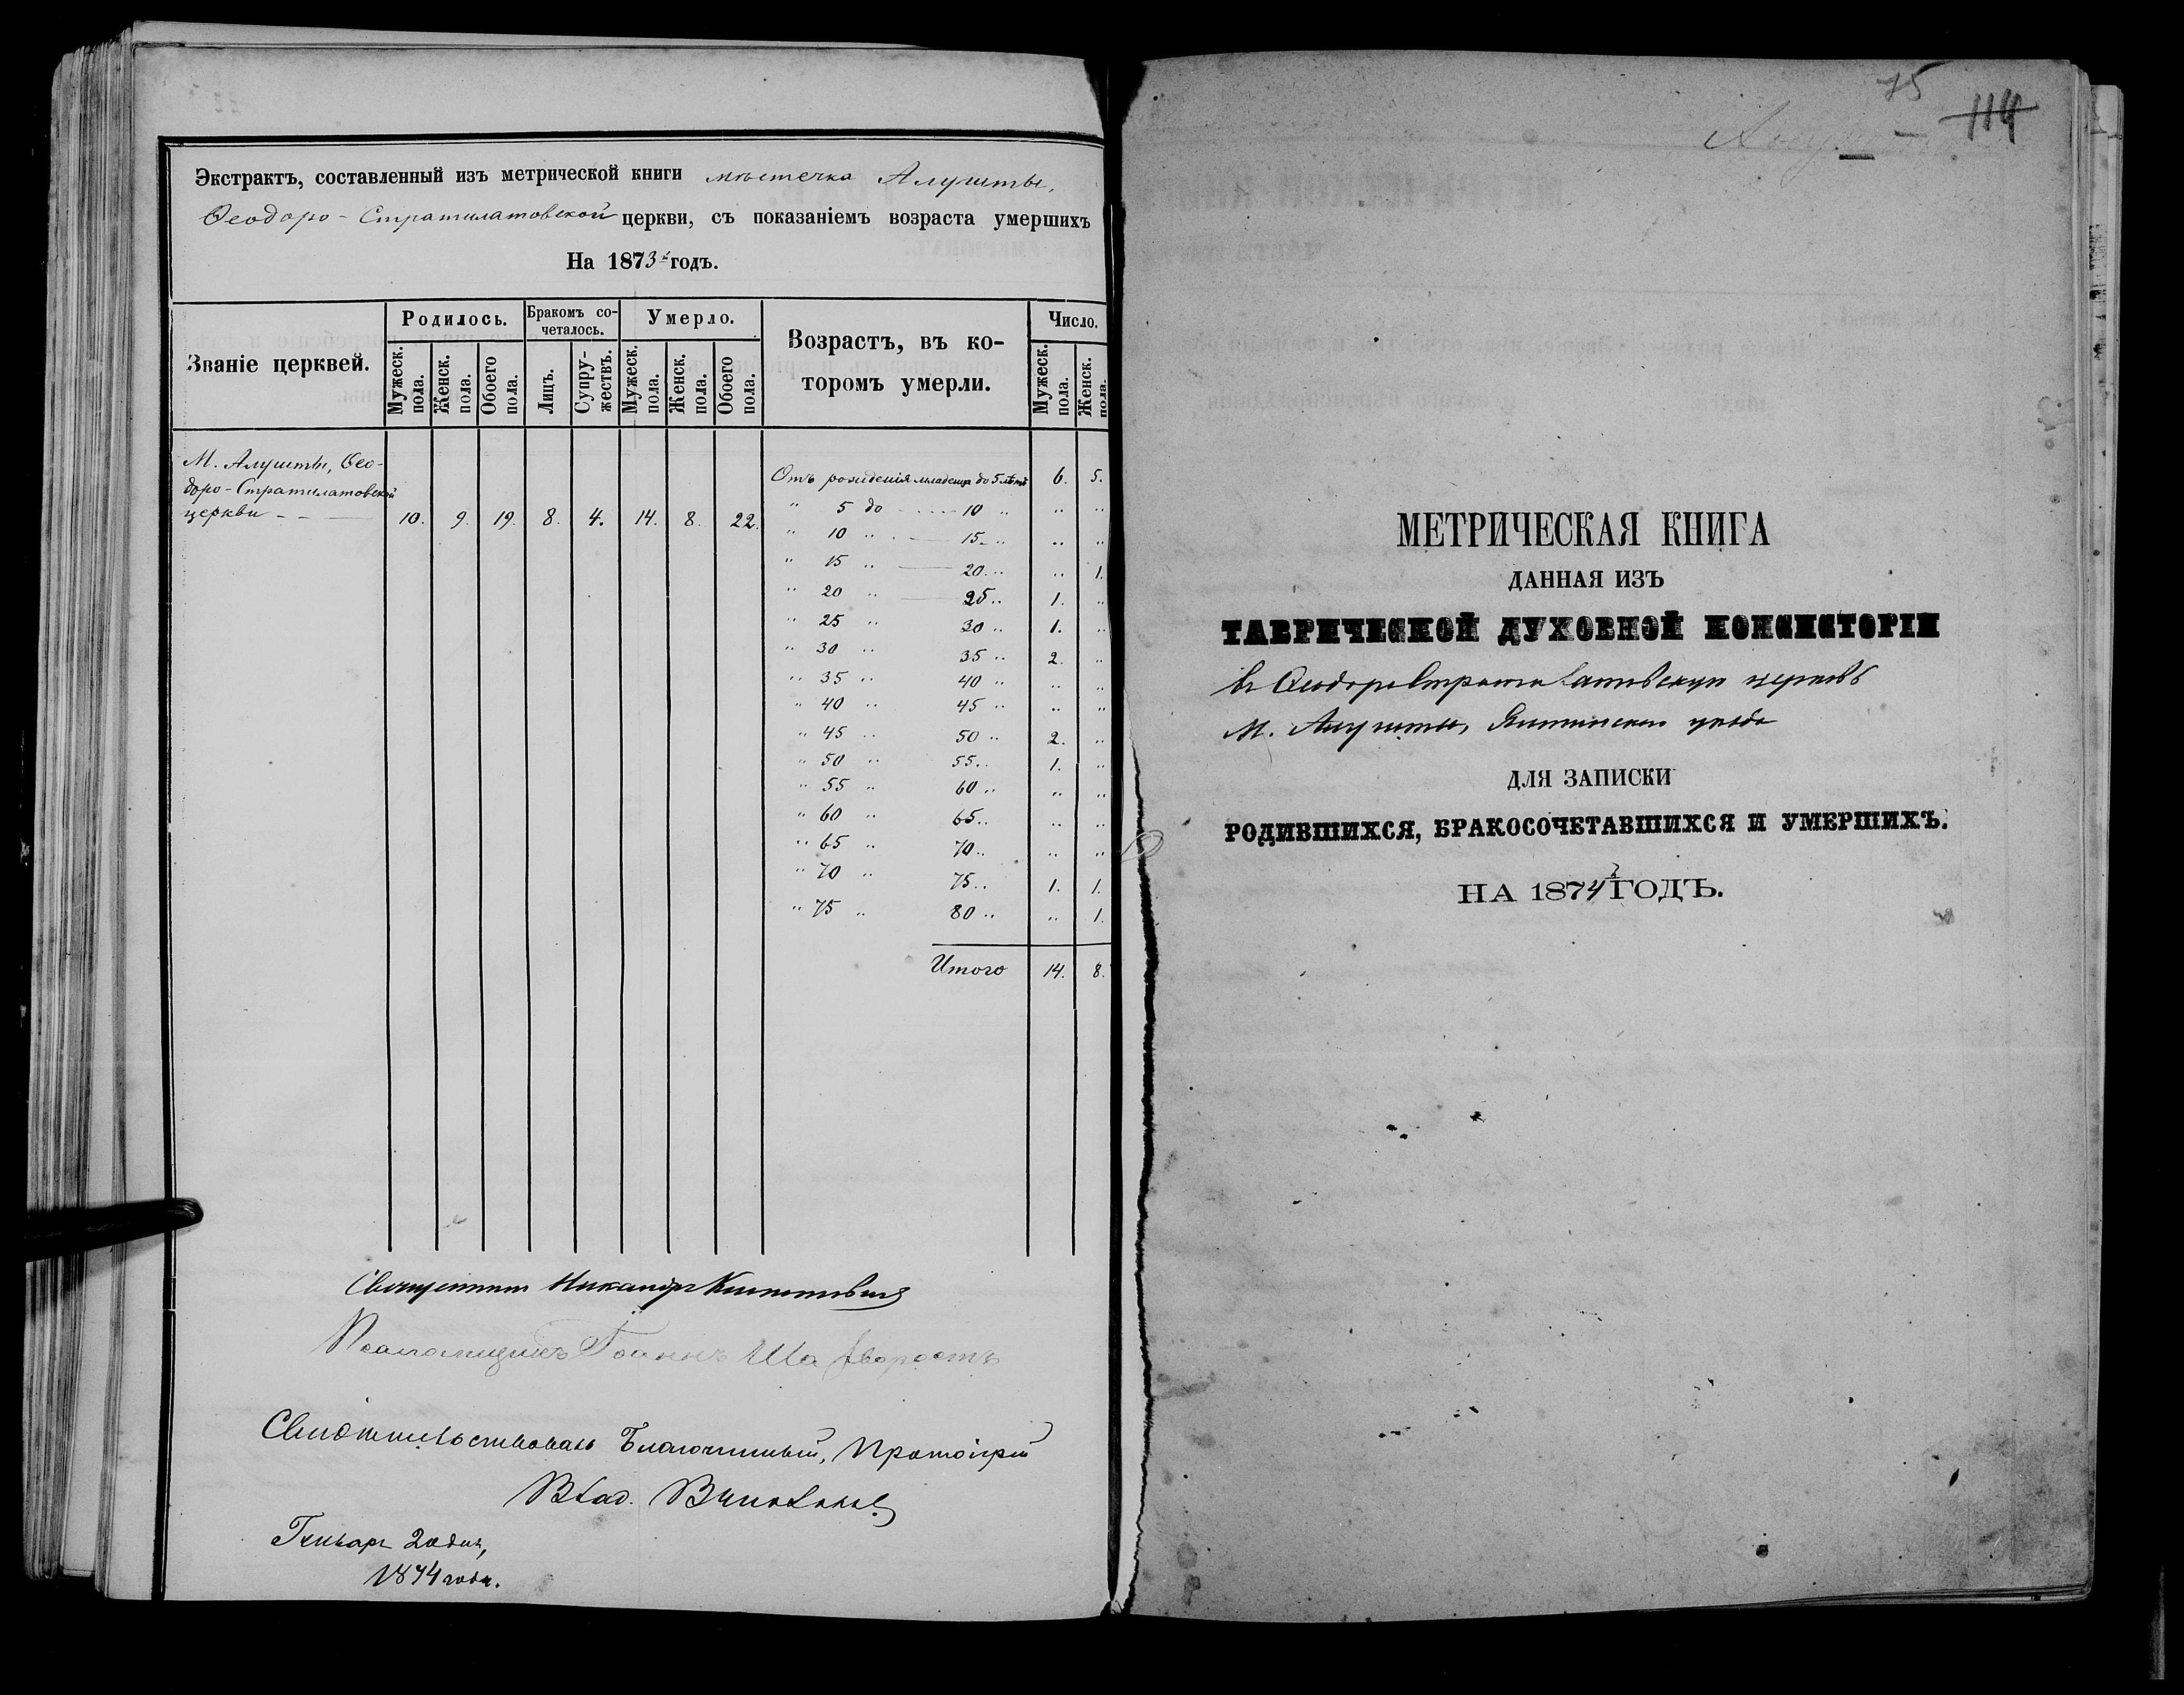 Экстрактъ, составленный изъ метрической книги мѣстечка Алушты,
Ѳеодоро-Стратилатовской церкви, съ показаніемъ возраста умершихъ
На 1873й годъ.
Званіе церквей.
Родилось.
Мужеск. пола.
Женск. пола.
Обоего пола.
Бракомъ со-
четалось.
Лицъ.
Супру-
жествъ.
Умерло.
Мужеск. пола.
Женск. пола.
Обоего пола.
Возрастъ, въ ко-
торомъ умерли.
Число.
Мужеск. пола.
Женск. пола.
М. Алушты, Ѳео-
доро-Стратилатовской
церкви - - — 10. 9. 19. 8. 4. 14. 8. 22.
Отъ рожденія младенца до 5 лѣтъ 6. 5.
" 5 до - - - - 10 " " "
" 10 " - — 15 " " "
" 15 " — 20 " " 1.
" 20 " — 25 " 1. "
" 25 " 30 " 1. "
" 30 " 35 " 2. "
" 35 " 40 " " "
" 40 " 45 " " "
" 45 " 50 " 2. "
" 50 " 55 " 1. "
" 55 " 60 " " "
" 60 " 65 " " "
" 65 " 70 " " "
" 70 " 75 " 1. 1.
" 75 " 80 " " 1.
Итого 14. 8.
Священникъ Никандръ
Псаломщикъ Іоаннъ
Свидѣтельствовалъ Благочинный, Протоіерей
Влад.
Генваря 20 дня,
1874 года.
75
114
МЕТРИЧЕСКАЯ КНИГА
ДАННАЯ ИЗЪ
ТАВРИЧЕСКОЙ ДУХОВНОЙ КОНСИСТОРІИ
въ Ѳеодоро Стратилатовскую церковь
м. Алушты, Ялтинскаго уѣзда
ДЛЯ ЗАПИСКИ
РОДИВШИХСЯ, БРАКОСОЧЕТАВШИХСЯ И УМЕРШИХЪ.
НА 1874й ГОДЪ.